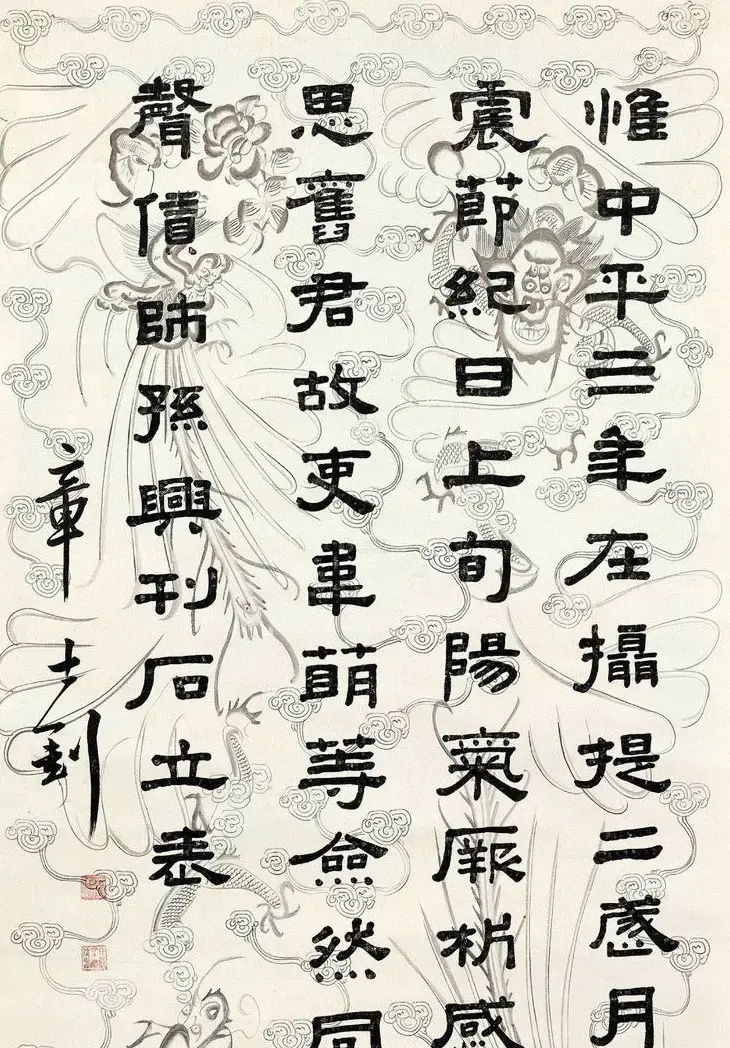 惟中平三年在攝提二月
震節紀日上旬陽氣厥析感
思舊君故吏韋萌等僉然同
聲師孫興刊石立表
章士釗